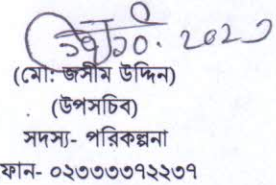 ১০. ২০২৩
(মো: জসীম উদ্দিন)
(উপসচিব)
সদস্য- পরিকল্পনা
ফোন- ০২৩৩৩৩৭২২৩৭